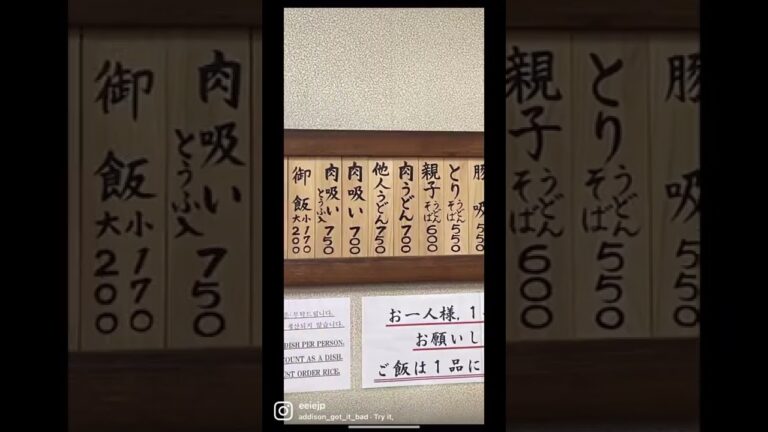 豚吸 550
とり うどん そば 550
親子 うどん そば 600
肉うどん 700
他人うどん 750
肉吸い 700
肉吸い とうふ入 750
御飯 小170 大200
부탁드립니다.
않습니다.
DISH PER PERSON.
COUNT AS A DISH.
ST ORDER RICE.
お一人様、1
お願いし
ご飯は1品に
eeiejp
addison_got_it_bad · Try it,